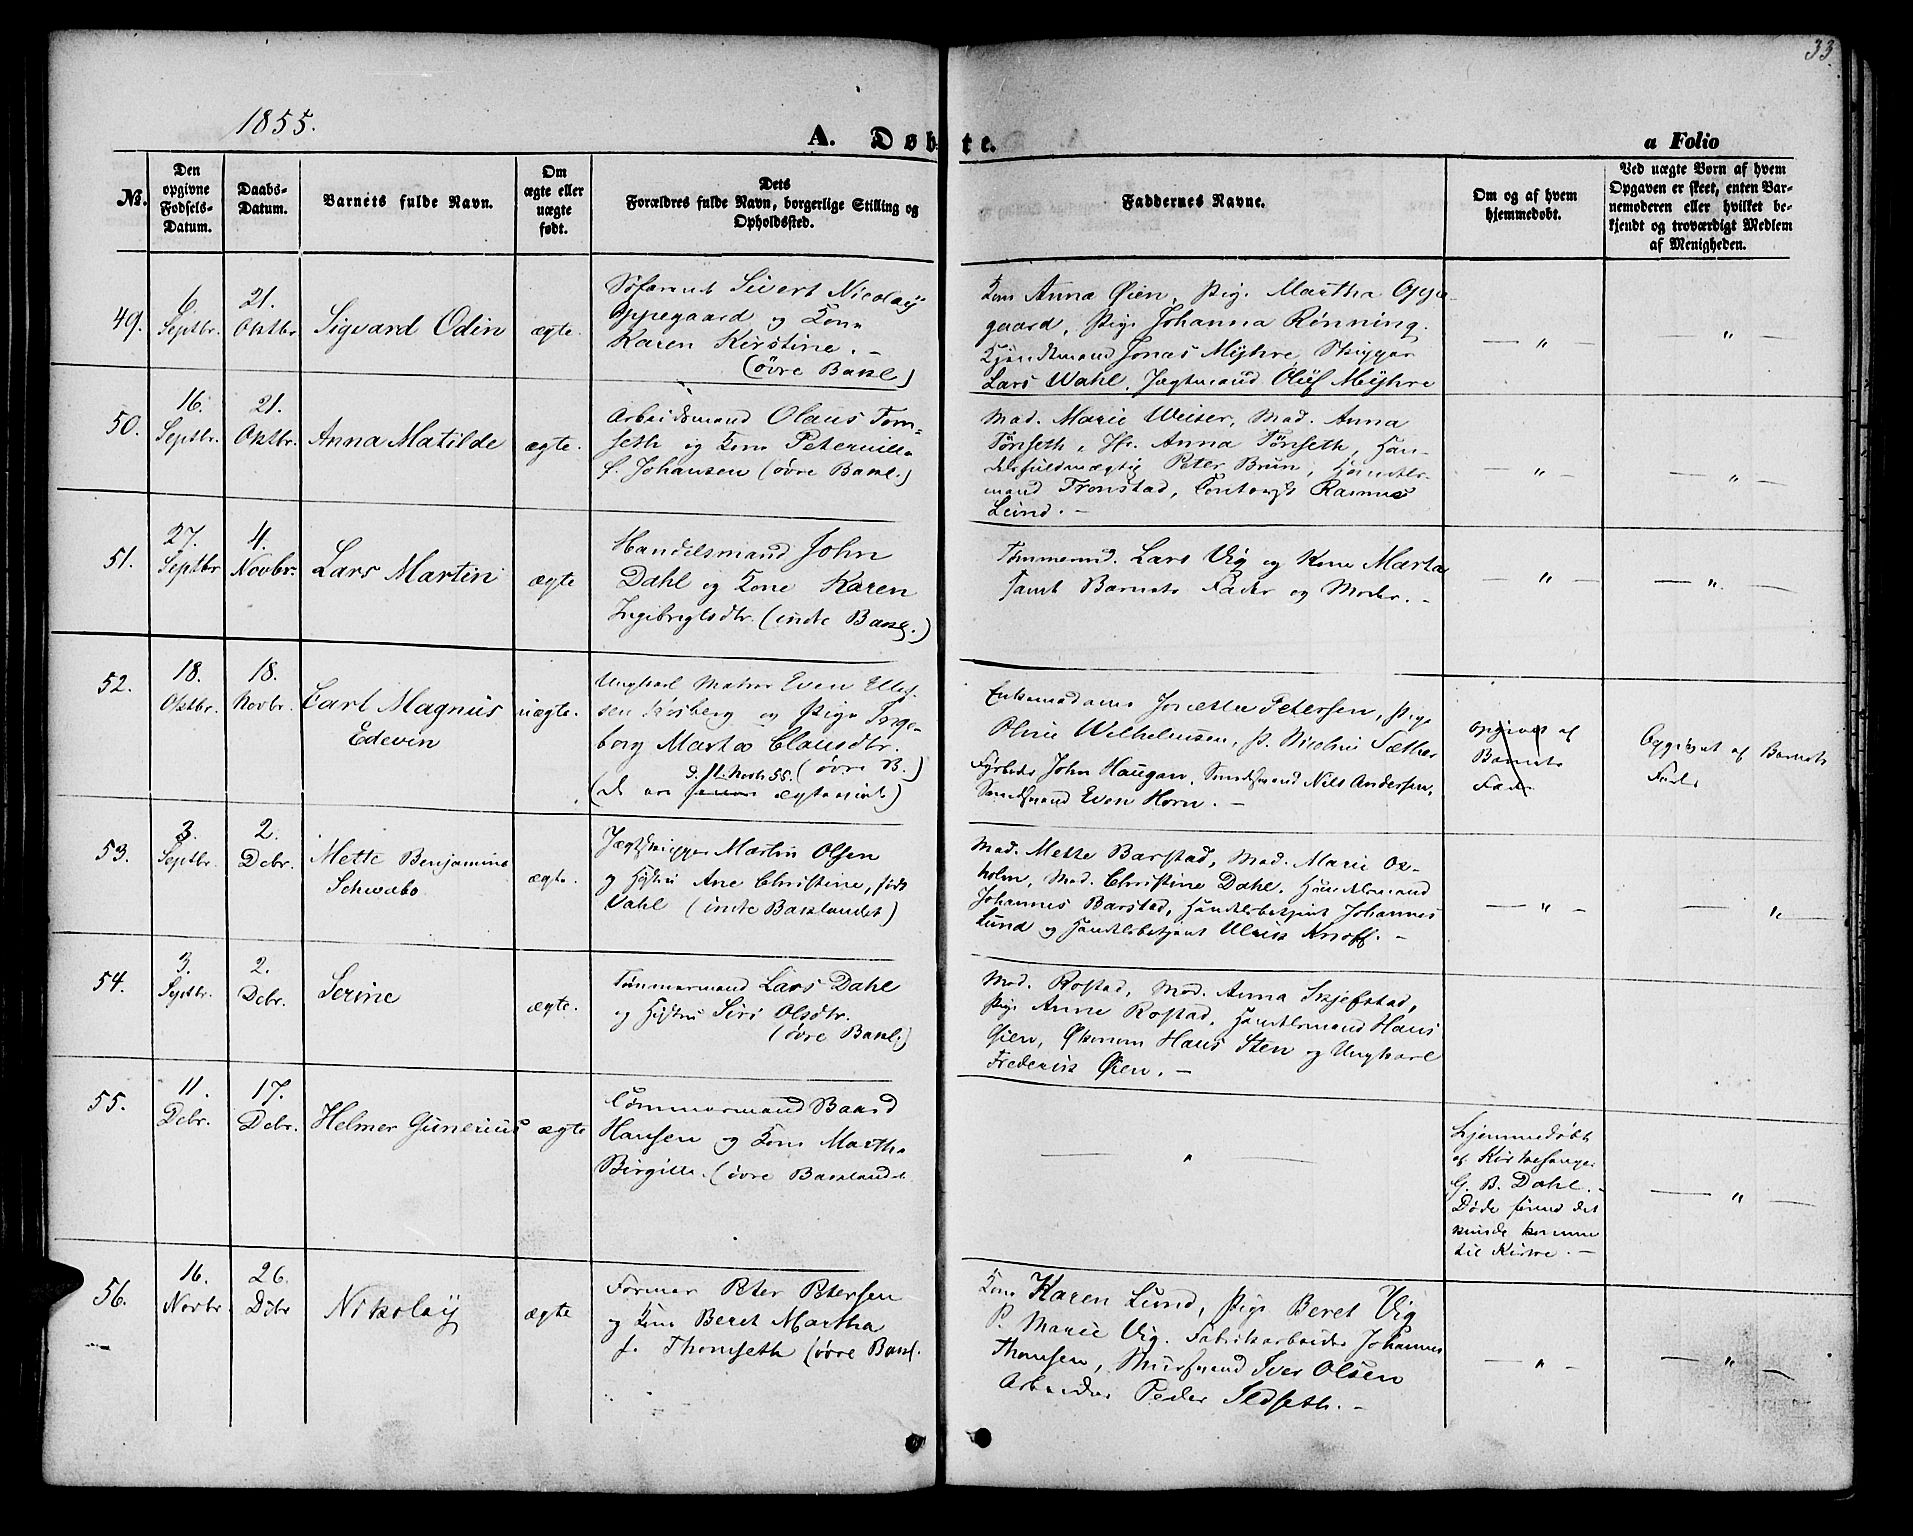 33.
1855.
A. Døbte.
a Folio
No.
Den opgivne Fødsels-Datum.
Daabs-Datum.
Barnets fulde Navn.
Om ægte eller uægte født.
Dets Forældres fulde Navn, borgerlige Stilling og Opholdssted.
Faddernes Navne.
Om og af hvem hjemmedøbt.
Ved uægte Børn af hvem Opgaven er skeet, enten Barnemoderen eller hvilket bekjendt og troværdigt Medlem af Menigheden.
49.
6 Septbr.
21. Oktbr
Sigvard Odin
ægte.
Søfarend Sivert Nicolay
Oppegaard og Kone
Karen Kirstine. -
(øvre Bakl.)
Kone Anna Øien, Pige Martha Oppe-
gaard, Pige Johanna Rønning.
Jonas Myhre, Skipper
Lars Wahl, Jægtmand Oluf Myhre
— " —
— " —
50.
16. Septbr.
21. Oktbr.
Anna Matilde
ægte.
Arbeidsmand Olaus Tøm-
seth og Kone Peternille
f. Johansen (øvre Bakl.)
Mad. Marie Weiser, Mad. Anna
Tønseth, Fr. Anna Tønseth, Han-
delsfuldmægtig Peter Brun, Handels-
mand Tronstad, Contorist Rasmus
Lund. -
— " —
— " —
51.
27. Septbr
4. Novbr.
Lars Martin
ægte
Handelsmand John
Dahl og Kone Karen
Ingebrigtsdtr. (indre Bakl.)
Tømmermd. Lars Vig og Kone Marta
samt Barnets Fader og Moder. -
— " —
— " —
52.
18. Oktbr.
18. Novbr.
Carl Magnus
Edevin
uægte.
Ungkarl Matros Even Ellef-
sen og Pige Inge-
borg Marta Clausdtr.
(øvre B.)
Enkemadame Jonette Petersen, Pige
Oline Wilhelmsen, P. Nicoline Sæther
Fyrbøder John Haugan, Smedsvend Nils Andersen,
Smedsvend Even Horn. -
opgivet af
Barnets
Fader
Opgivet af Barnets
Fader
53.
3. Septbr.
2. Debr.
Mette Benjamine
Schwabo
ægte.
Jægtskipper Martin Olsen
og Hustru Ane Christine, født
Vahl (indre Baklandet)
Mad. Mette Barstad, Mad. Marie Ox-
holm, Mad. Christine Dahl, Handelsmand
Johannes Barstad, Handelsbetjent Johannes
Lund og Handelsbetjent Ulrik Knoff. -
— " —
"
54.
3. Septbr.
2. Debr.
Serine
ægte.
Tømmermand Lars Dahl
og Hustru Siri Olsdtr.
(øvre Bakl.)
Mad. Rostad, Mad. Anna Skjefstad,
Pige Anne Rostad, Handelsmand Hans
Øien, Økonom Hans Sten og Ungkarl
Frederik Øien. -
55.
11. Debr.
17. Debr.
Helmer Gunerius
ægte
Tømmermand Baard
Hansen og Kone Martha
Birgitte. (øvre Baklandet
— " —
hjemmedøbt
af Kirkesanger
G. B. Dahl. -
Døde førend det
kunde komme
til Kirke. -
— " —
56.
16. Novbr.
26. Debr
Nikolay
ægte
Former Peter Petersen
og Kone Beret Martha
f. Thomseth (øvre Bakl.
Kone Karen Lund, Pige Beret Vig
P. Marie Vig. Fabrikarbeider Johannes
Thomsen, Murssvend Iver Olsen
Arbeider Peder Seldseth. -
— " —
— " —